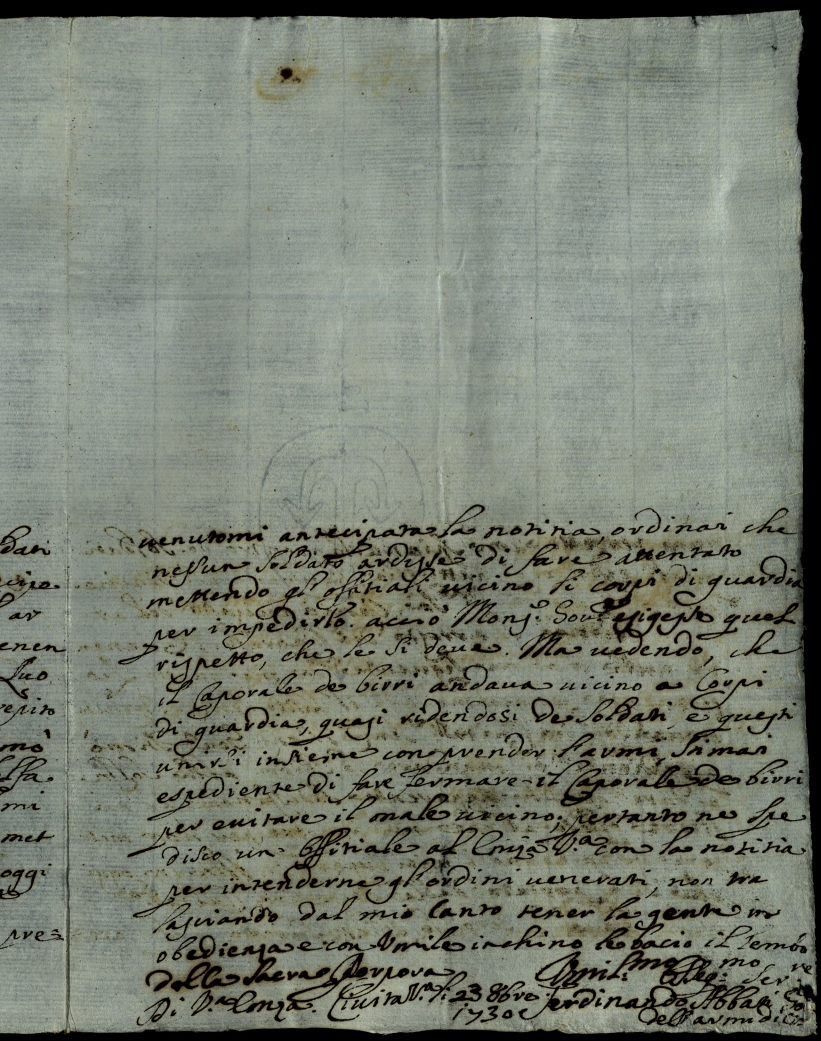 dati
cipe
ar
enen
suo
repito
mò
mi
met
oggi
pre=
venutomi antecipata la notitia, ordinai che
nessun soldato ardisse di fare attentato
mettendo gl'offitiali vicino li corpi di guardia
per impedirlo. acciò Monsr. Govre. esigesse quel
rispetto, che le si deve. Ma vedendo, che
il Caporale de birri andava vicino a Corpi
di guardia, quasi ridendosi de soldati, e questi
unirsi insieme con prender l'armi, stimai
espediente di fare fermare il Caporale de birri
per evitare il male vicino; pertanto ne spe
disco un offitiale al Emza. Va. con la notitia
per intenderne gl'ordini venerati, non tra
lasciando dal mio Canto tener la gente in
obedienza e con Umile inchino le bacio il lembo
della Sacra Porpora
Di Va. Emza. Civita Va. li 23 8bre 1730
Umilmo. Obligmo. Serre.
Ferdinando Abbati
dell'armi di